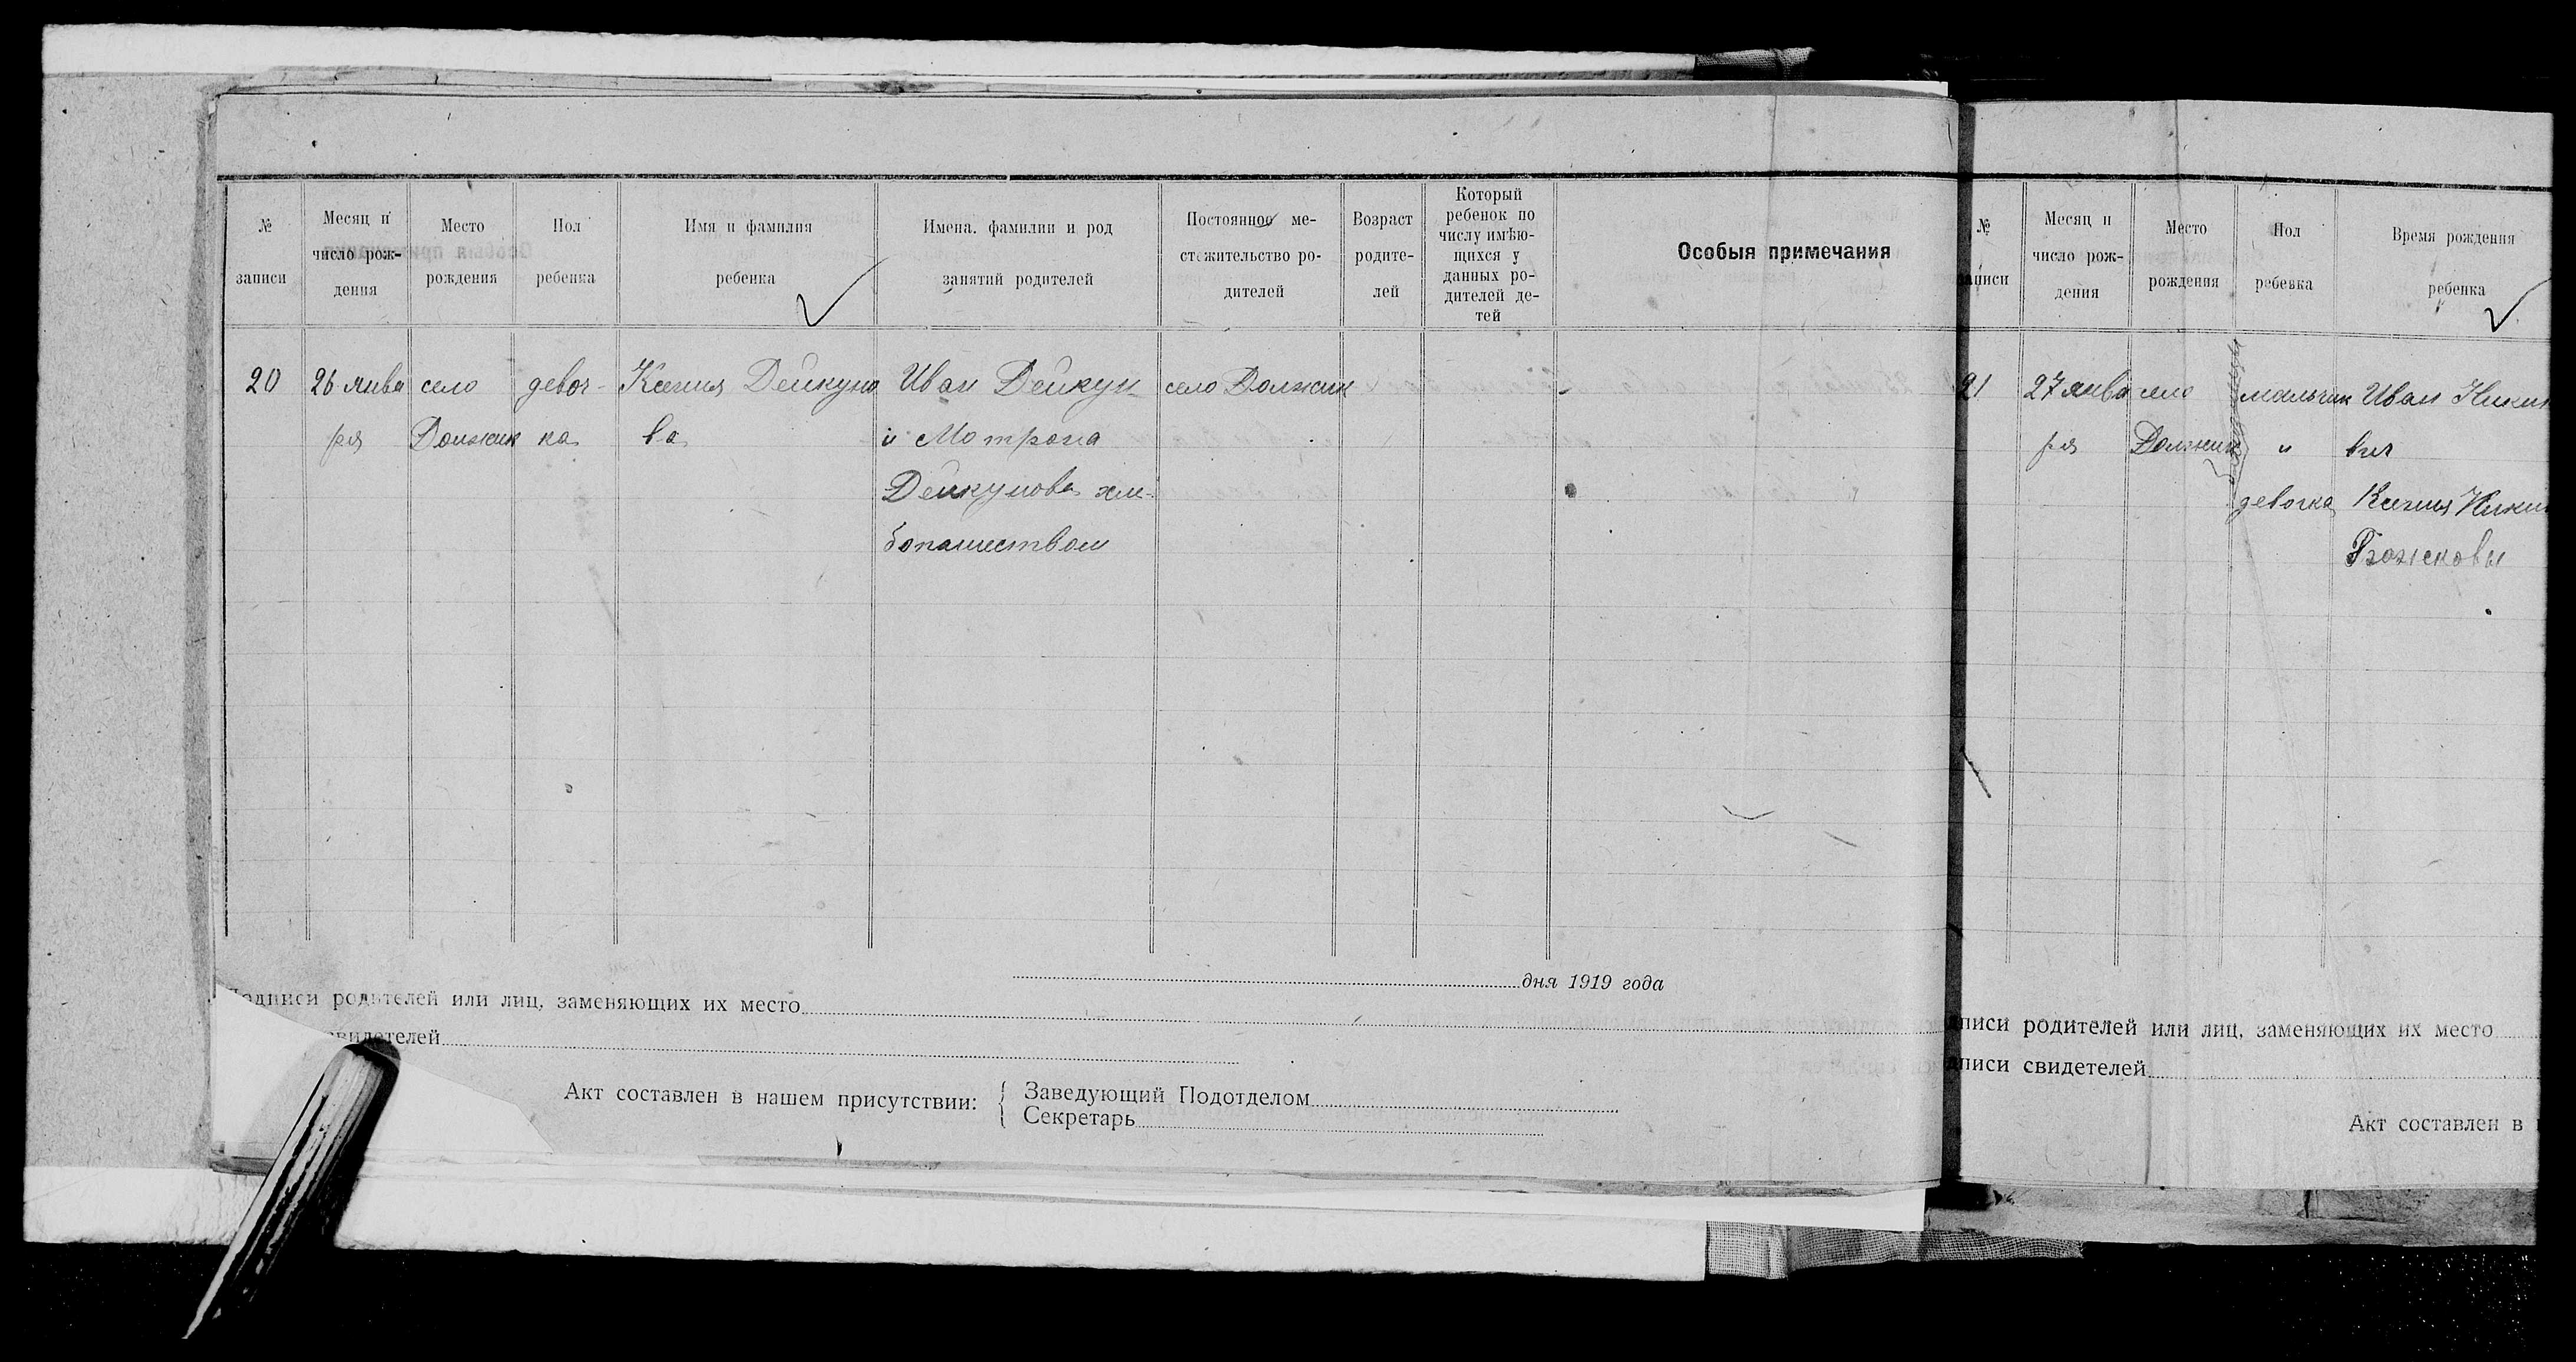 № записи
Месяц и число рождения
Место рождения
Пол ребенка
Имя и фамилия ребенка
Имена. фамилии и род занятий родителей
Постоянное местожительство родителей
Возраст родителей
Который ребенок по числу имѣющихся у данных родителей детей
Особыя примечания
20 26 янва село девоч- Ксения Дейкуно Иван Дейкун село Должик
ря Должик ка ва и Мотрона
Дейкунова хле-
бопашеством
дня 1919 года
Подписи родителей или лиц, заменяющих их место
свидетелей
Акт составлен в нашем присутствии:
Заведующий Подотделом
Секретарь
№ записи
Месяц и число рождения
Место рождения
Пол ребенка
Время рождения ребенка
21 27 янва село мальчик Иван
ря Должик и вич
девочка Ксения
писи родителей или лиц, заменяющих их место
писи свидетелей
Акт составлен в